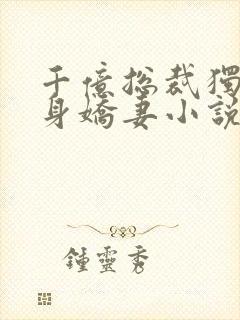 千億總裁獨
身嬌妻小說
鍾靈秀